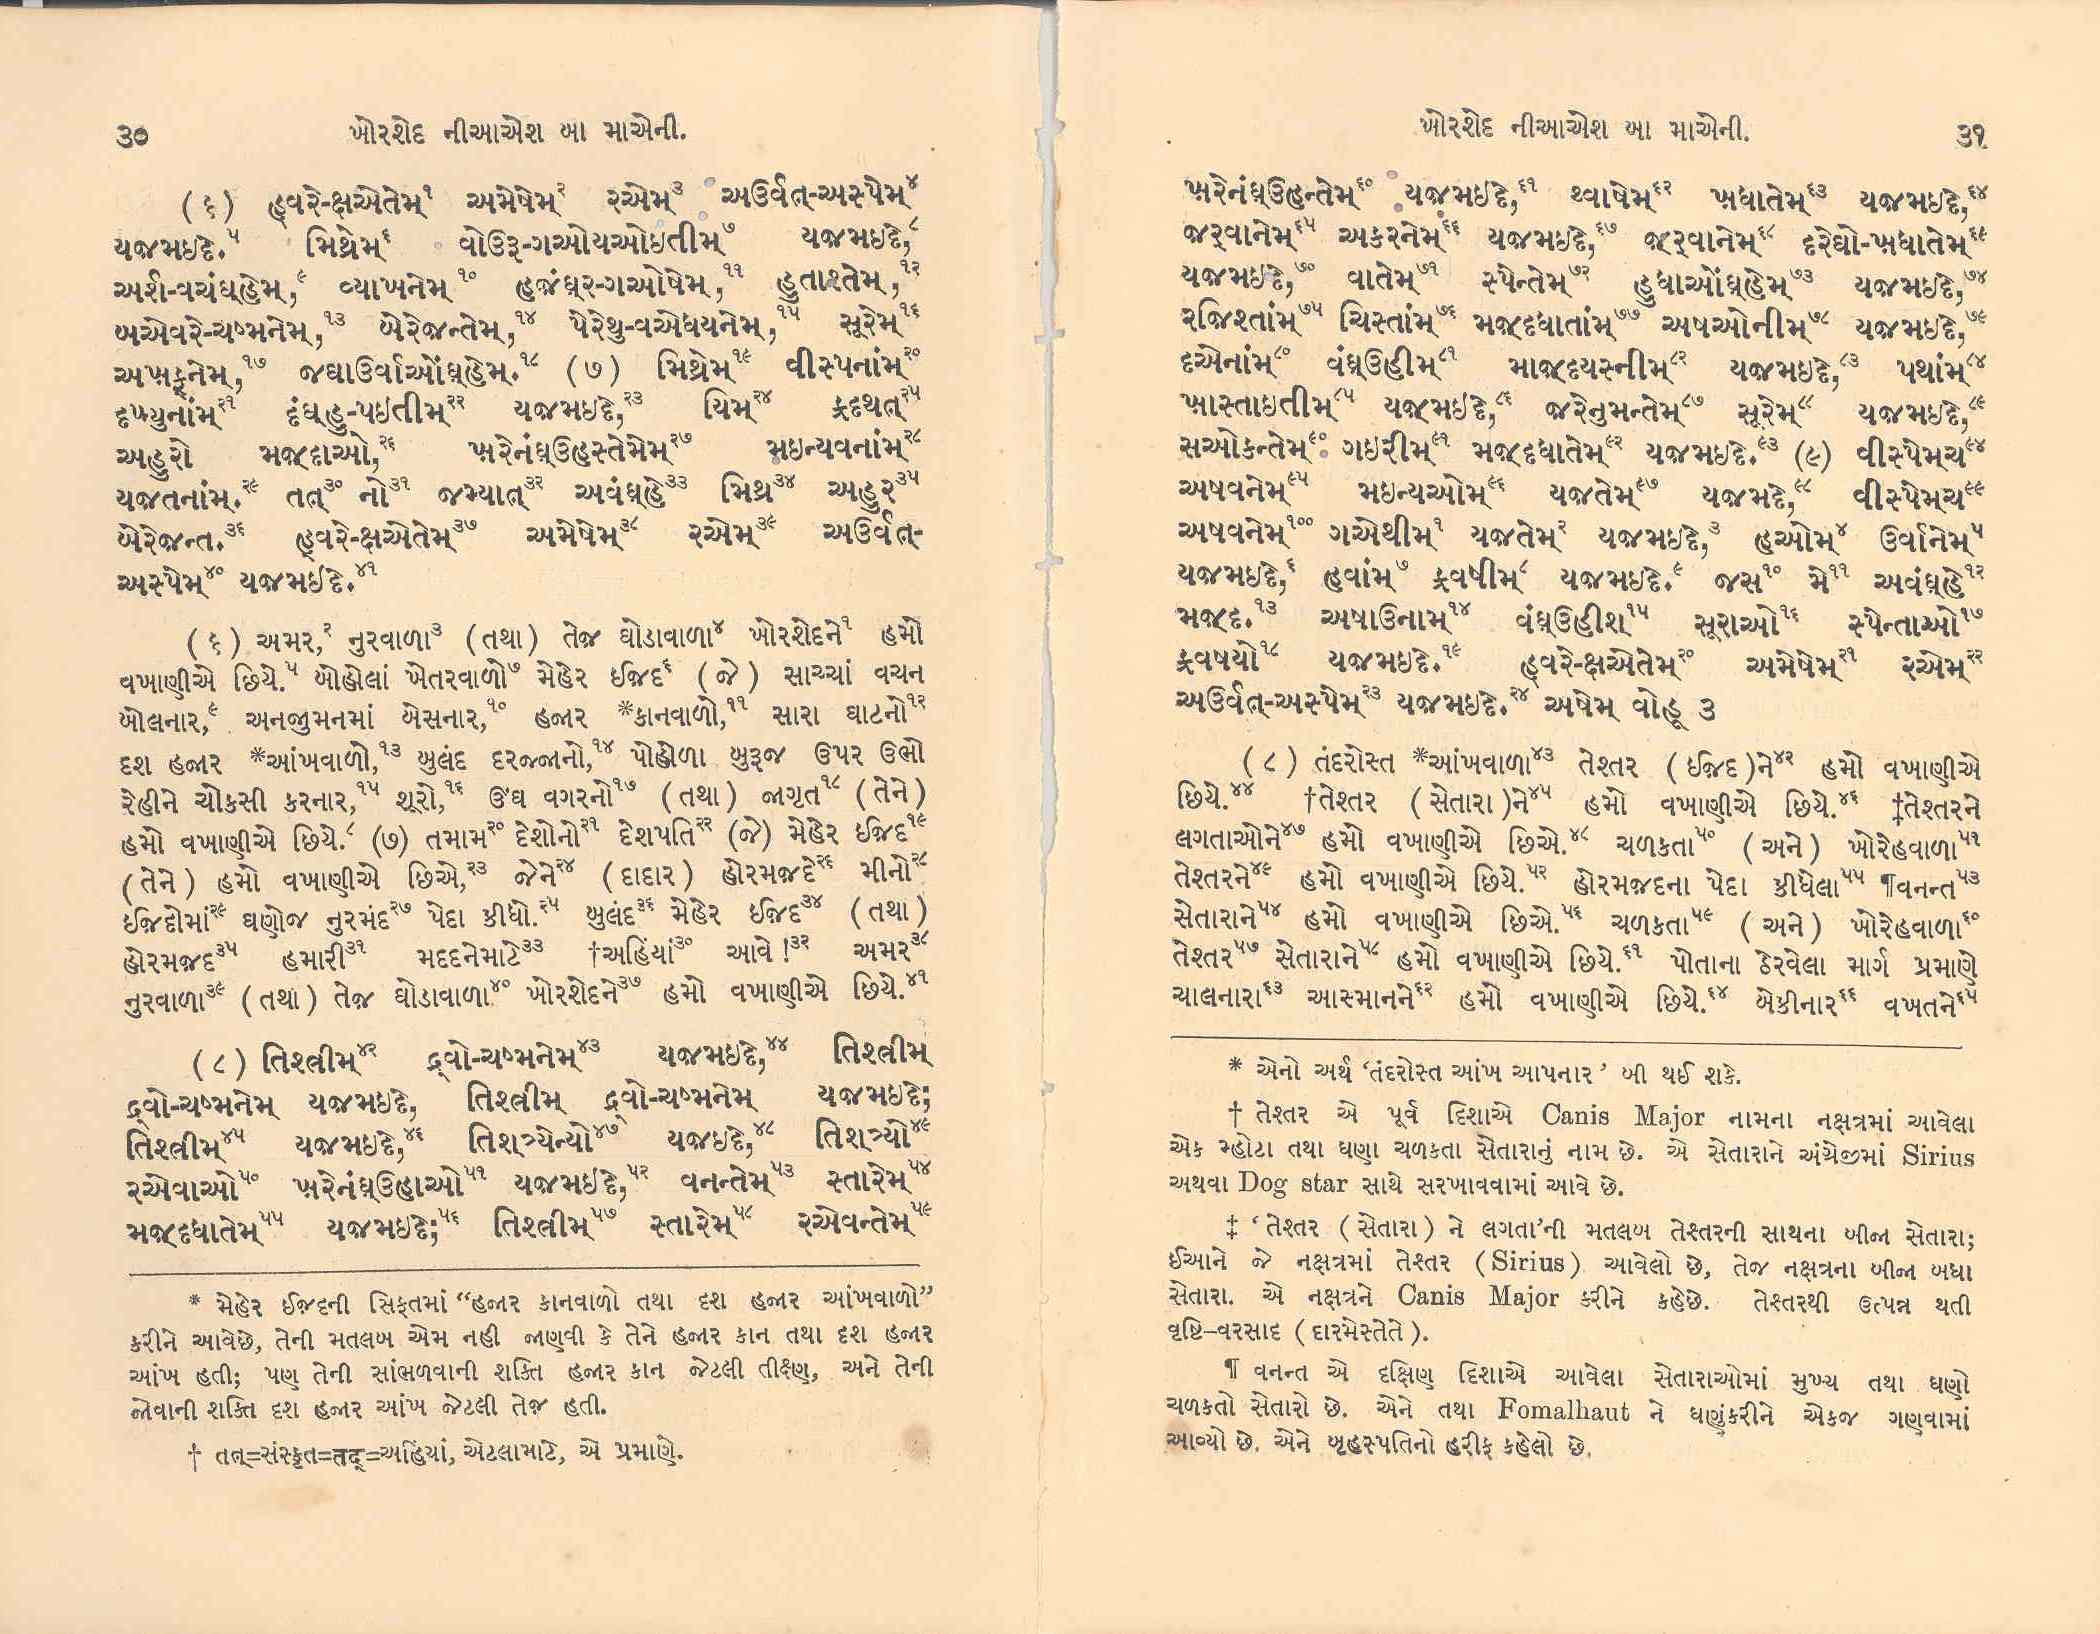 ૩૦
ખોરશેદ નીઆએશ બા માએની.
(૬) હ્વરે-ક્ષએતેમ્૧ અમેષેમ્૨ રએમ્૩ અઉર્વત્-અસ્પેમ્૪
યજ઼મઇદે.૫ મિથ્રેમ્૬ વોઉરૂ-ગઓયઓઇતીમ્૭ યજ઼મઇદે,૮
અર્શ-વચંઘ્હેમ્,૯ વ્યાખનેમ્૧૦ હજ઼ંઘ્ર-ગઓષેમ્,૧૧ હુતાશ્તેમ્,૧૨
બએવરે-ચષ્મનેમ્,૧૩ બેરેજ઼ન્તેમ્,૧૪ પેરેથુ-વએધયનેમ્,૧૫ સૂરેમ્૧૬
અખ઼ફ્નેમ્,૧૭ જઘાઉર્વાઓંઘ્હેમ્.૧૮ (૭) મિથ્રેમ્૧૯ વીસ્પનાંમ્૨૦
દખ્યુનાંમ્૨૧ દંઘ્હુ-પઇતીમ્૨૨ યજ઼મઇદે,૨૩ યિમ્૨૪ ફ્રદથત્૨૫
અહુરો મજ઼્દાઓ,૨૬ ખ઼રેનંઘ્ઉહસ્તેમેમ્૨૭ મઇન્યવનાંમ્૨૮
યજ઼તનાંમ્.૨૯ તત્૩૦ નો૩૧ જમ્યાત્૩૨ અવંઘ્હે૩૩ મિથ્ર૩૪ અહુર૩૫
બેરેજ઼ન્ત.૩૬ હ્વરે-ક્ષએતેમ્૩૭ અમેષેમ્૩૮ રએમ્૩૯ અઉર્વત્-
અસ્પેમ્૪૦ યજ઼મઇદે.૪૧
(૬) અમર,૨ નુરવાળા૩ (તથા) તેજ઼ ઘોડાવાળા૪ ખોરશેદને૧ હમો
વખાણીએ છિયે.૫ બોહોલાં ખેતરવાળો૭ મેહેર ઈજ઼દ૬ (જે) સાચ્ચાં વચન
બોલનાર,૯ અનજીમનમાં બેસનાર,૧૦ હજાર *કાનવાળો,૧૧ સારા ઘાટનો૧૨
દશ હજાર *આંખવાળો,૧૩ બુલંદ દરજ્જાનો,૧૪ પોહોળા બુરૂજ ઉપર ઉભો
રેહીને ચોકસી કરનાર,૧૫ શૂરો,૧૬ ઊંઘ વગરનો૧૭ (તથા) જાગૃત૧૮ (તેને)
હમો વખાણીએ છિયે.૮ (૭) તમામ૨૦ દેશોનો૨૧ દેશપતિ૨૨ (જે) મેહેર ઈજ઼દ૧૯
(તેને) હમો વખાણીએ છિએ,૨૩ જેને૨૪ (દાદાર) હોરમજ઼દે૨૬ મીનો૨૮
ઇજ઼દોમાં૨૯ ઘણોજ નુરમંદ૨૭ પેદા કીધો.૨૫ બુલંદ૩૬ મેહેર ઇજ઼દ૩૪ (તથા)
હોરમજ઼દ૩૫ હમારી૩૧ મદદનેમાટે૩૩ †અહિંયાં૩૦ આવે!૩૨ અમર૩૮
નુરવાળા૩૯ (તથા) તેજ઼ ઘોડાવાળા૪૦ ખોરશેદને૩૭ હમો વખાણીએ છિયે.૪૧
(૮) તિશ્ત્રીમ્૪૨ દ્ર્વો-ચષ્મનેમ્૪૩ યજ઼મઇદે,૪૪ તિશ્ત્રીમ્
દ્ર્વો-ચષ્મનેમ્ યજ઼મઇદે, તિશ્ત્રીમ્ દ્ર્વો-ચષ્મનેમ્ યજ઼મઇદે;
તિશ્ત્રીમ્૪૫ યજ઼મઇદે,૪૬ તિશ્ત્ર્યેન્યો૪૭ યજ઼ઇદે,૪૮ તિશ્ત્ર્યો૪૯
રએવાઓ૫૦ ખ઼રેનંઘ્ઉહાઓ૫૧ યજ઼મઇદે,૫૨ વનન્તેમ્૫૩ સ્તારેમ્૫૪
મજ઼્દધાતેમ્૫૫ યજ઼મઇદે;૫૬ તિશ્ત્રીમ્૫૭ સ્તારેમ્૫૮ રએવન્તેમ્૫૯
* મેહેર ઈજ઼દની સિફતમાં “હજાર કાનવાળો તથા દશ હજાર આંખવાળો”
કરીને આવેછે, તેની મતલબ એમ નહી જાણવી કે તેને હજાર કાન તથા દશ હજાર
આંખ હતી; પણ તેની સાંભળવાની શક્તિ હજાર કાન જેટલી તીક્ષ્ણ, અને તેની
જોવાની શક્તિ દશ હજાર આંખ જેટલી તેજ઼ હતી.
† તત્=સંસ્કૃત=તદ્=અહિંયાં, એટલામાટે, એ પ્રમાણે.
ખોરશેદ નીઆએશ બા માએની.
૩૧
ખ઼રેનંઘ્ઉહન્તેમ્૬૦ યજ઼મઇદે,૬૧ થ્વાષેમ્૬૨ ખ઼ધાતેમ્૬૩ યજ઼મઇદે,૬૪
જ઼ર્‌વાનેમ્૬૫ અકરનેમ્૬૬ યજ઼મઇદે,૬૭ જ઼ર્‌વાનેમ્૬૮ દરેઘો-ખ઼ધાતેમ્૬૯
યજ઼મઇદે,૭૦ વાતેમ્૭૧ સ્પેન્તેમ્૭૨ હુધાઓંઘ્હેમ્૭૩ યજ઼મઇદે,૭૪
રજ઼િશ્તાંમ્૭૫ ચિસ્તાંમ્૭૬ મજ઼્દધાતાંમ્૭૭ અષઓનીમ્૭૮ યજ઼મઇદે,૭૯
દએનાંમ્૮૦ વંઘ્ઉહીમ્૮૧ માજ઼્દયસ્નીમ્૮૨ યજ઼મઇદે,૮૩ પથાંમ્૮૪
ખ઼ાસ્તાઇતીમ્૮૫ યજ઼મઇદે,૮૬ જ઼રેનુમન્તેમ્૮૭ સૂરેમ્૮૮ યજ઼મઇદે,૮૯
સઓકન્તેમ્૯૦ ગઇરીમ્૯૧ મજ઼્દધાતેમ્૯૨ યજ઼મઇદે.૯૩ (૯) વીસ્પેમ્ચ૯૪
અષવનેમ્૯૫ મઇન્યઓમ્૯૬ યજ઼તેમ્૯૭ યજ઼મદે,૯૮ વીસ્પેમ્ચ૯૯
અષવનેમ્૧૦૦ ગએથીમ્૧ યજ઼તેમ્૨ યજ઼મઇદે,૩ હઓમ્૪ ઉર્વાનેમ્૫
યજ઼મઇદે,૬ હવાંમ્૭ ફ્રવષીમ્૮ યજ઼મઇદે.૯ જસ૧૦ મે૧૧ અવંઘ્હે૧૨
મજ઼્દ.૧૩ અષાઉનામ્૧૪ વંઘ્ઉહીશ્૧૫ સૂરાઓ૧૬ સ્પેન્તાઓ૧૭
ફ્રવષયો૧૮ યજ઼મઇદે.૧૯ હ્વરે-ક્ષએતેમ્૨૦ અમેષેમ્૨૧ રએમ્૨૨
અઉર્વત્-અસ્પેમ્૨૩ યજ઼મઇદે.૨૪ અષેમ્ વોહૂ ૩
(૮) તંદરોસ્ત *આંખવાળા૪૩ તેશ્તર (ઈજ઼દ)ને૪૨ હમો વખાણીએ
છિયે.૪૪ †તેશ્તર (સેતારા)ને૪૫ હમો વખાણીએ છિયે.૪૬ ‡તેશ્તરને
લગતાઓને૪૭ હમો વખાણીએ છિએ.૪૮ ચળકતા૫૦ (અને) ખોરેહવાળા૫૧
તેશ્તરને૪૯ હમો વખાણીએ છિયે.૫૨ હોરમજ઼દના પેદા કીધેલા૫૫ ¶વનન્ત૫૩
સેતારાને૫૪ હમો વખાણીએ છિએ.૫૬ ચળકતા૫૯ (અને) ખોરેહવાળા૬૦
તેશ્તર૫૭ સેતારાને૫૮ હમો વખાણીએ છિયે.૬૧ પોતાના ઠેરવેલા માર્ગ પ્રમાણે
ચાલનારા૬૩ આસ્માનને૬૨ હમો વખાણીએ છિયે.૬૪ બેકીનાર૬૬ વખતને૬૫
* એનો અર્થ ‘તંદરોસ્ત આંખ આપનાર’ બી થઈ શકે.
† તેશ્તર એ પૂર્વ દિશાએ Canis Major નામના નક્ષત્રમાં આવેલા
એક મ્હોટા તથા ઘણા ચળકતા સેતારાનું નામ છે. એ સેતારાને અંગ્રેજીમાં Sirius
અથવા Dog star સાથે સરખાવવામાં આવે છે.
‡ ‘તેશ્તર (સેતારા) ને લગતા’ની મતલબ તેશ્તરની સાથના બીજા સેતારા;
ઈઆને જે નક્ષત્રમાં તેશ્તર (Sirius) આવેલો છે, તેજ નક્ષત્રના બીજા બધા
સેતારા. એ નક્ષત્રને Canis Major કરીને કહેછે. તેશ્તરથી ઉત્પન્ન થતી
વૃષ્ટિ–વરસાદ (દારમેસ્તેતે).
¶ વનન્ત એ દક્ષિણ દિશાએ આવેલા સેતારાઓમાં મુખ્ય તથા ઘણો
ચળકતો સેતારો છે. એને તથા Fomalhaut ને ઘણુંકરીને એકજ ગણવામાં
આવ્યો છે. એને બૃહસ્પતિનો હરીફ કહેલો છે.